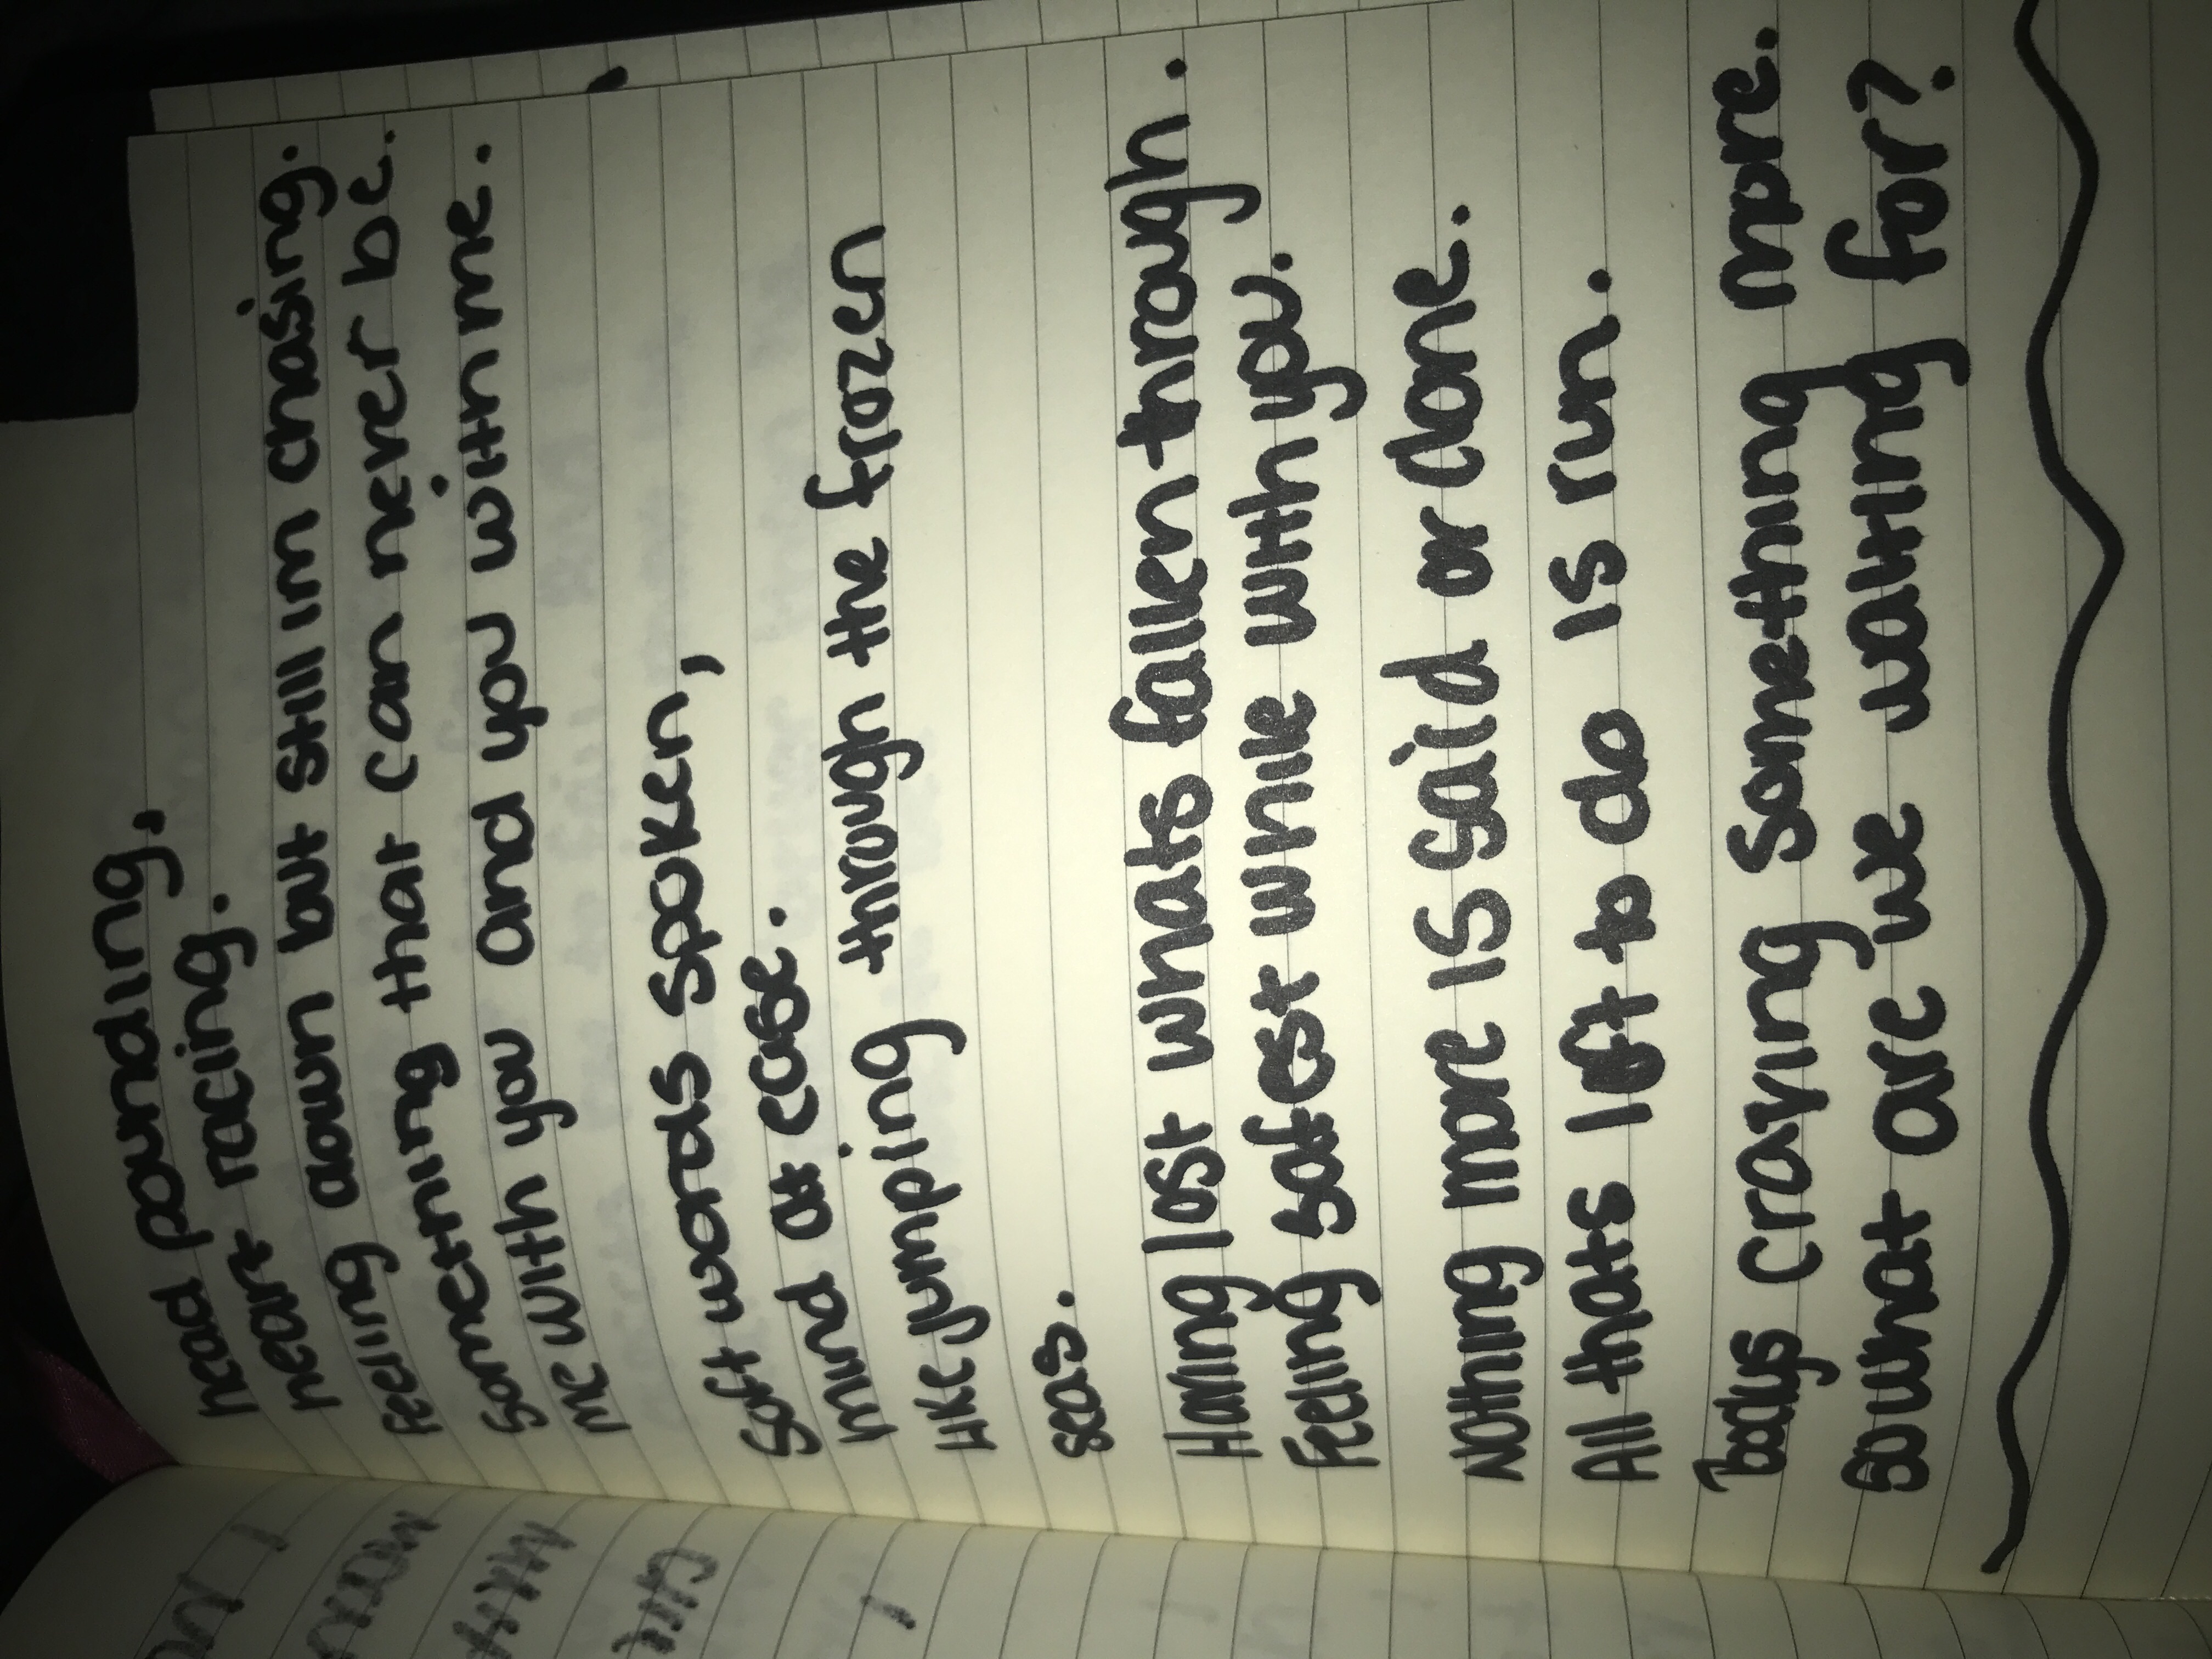 head pounding,
heart racing.
felling down but still im chasing.
something that can never be.
me with you and you with me.
Soft words spoken,
mind at ease.
like jumping through the frozen
seas.
Having lost whats fallen through.
feeling safest while with you.
Nothing more is said or done.
All thats left to do is run.
Bodys craving something more.
So what are we waiting for?